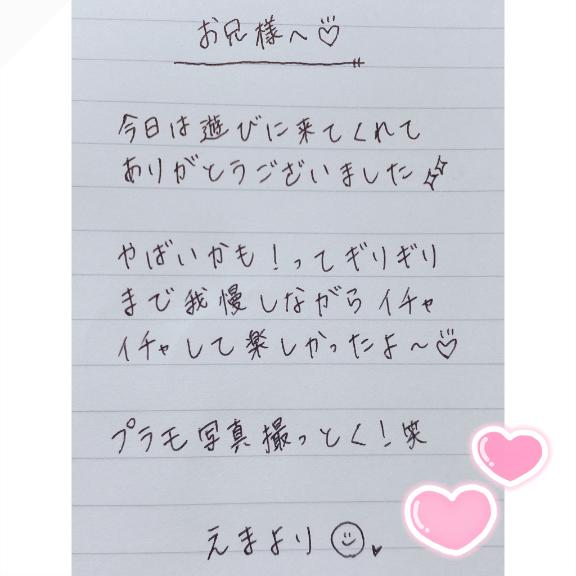 お兄様へ♡
今日は遊びに来てくれて
ありがとうございました
やばいかも！ってギリギリ
まで我慢しながらイチャ
イチャして楽しかったよ〜♡
プラモ写真撮っとく！笑
えまより